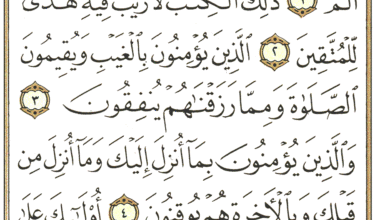 الٓمٓ ١ ذَٰلِكَ ٱلْكِتَٰبُ لَا رَيْبَ فِيهِ هُدًى
لِّلْمُتَّقِينَ ٢ ٱلَّذِينَ يُؤْمِنُونَ بِٱلْغَيْبِ وَيُقِيمُونَ
ٱلصَّلَوٰةَ وَمِمَّا رَزَقْنَٰهُمْ يُنفِقُونَ ٣
وَٱلَّذِينَ يُؤْمِنُونَ بِمَآ أُنزِلَ إِلَيْكَ وَمَآ أُنزِلَ مِن
قَبْلِكَ وَبِٱلْءَاخِرَةِ هُمْ يُوقِنُونَ ٤ أُو۟لَٰٓئِكَ عَلَىٰ